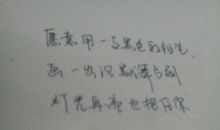 愿意用一支黑色的铅笔
画一出沉默舞台剧
灯光再亮也抱住你